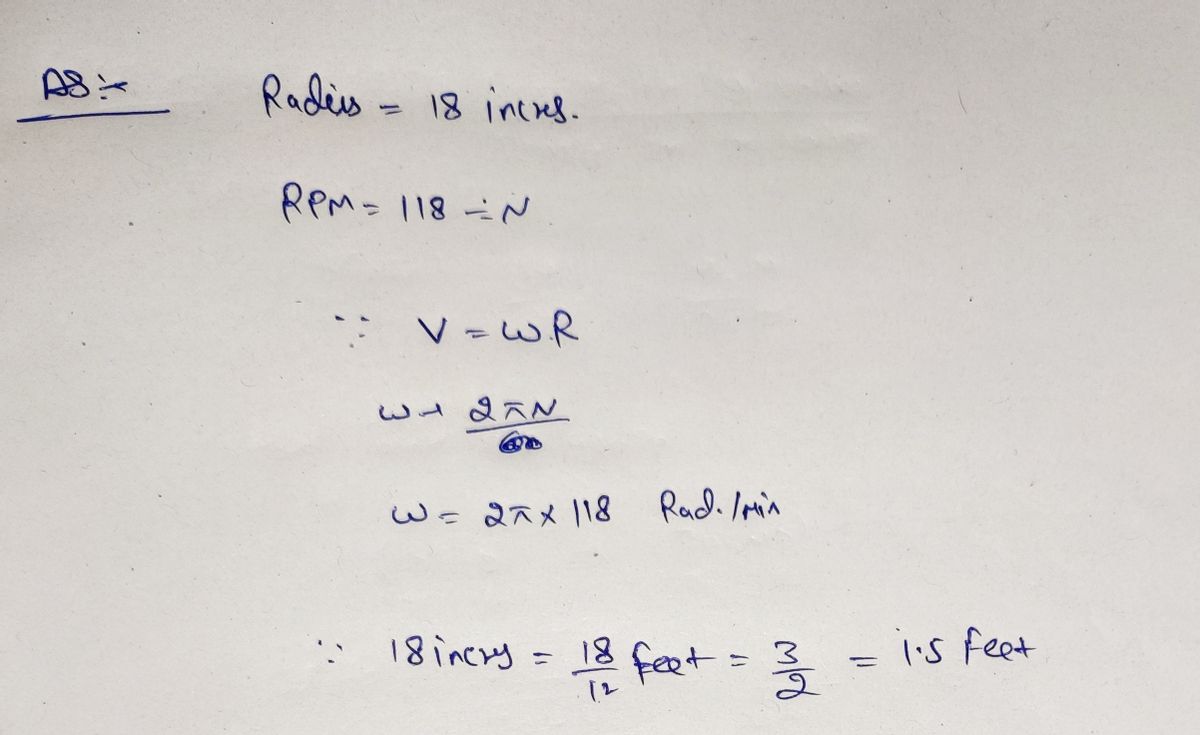 A8:-
Radius = 18 inches.
RPM = 118 = N
∵ V = ωR
ω = 2πN
ω = 2π × 118 Rad./Min
∵ 18 inches = 18/12 feet = 3/2 = 1.5 feet